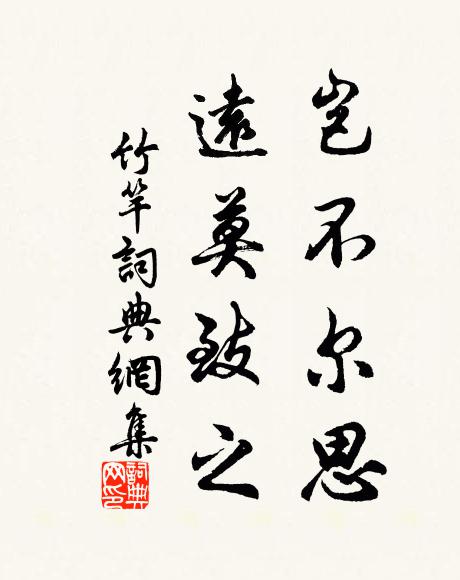 豈不尔思
遠莫致之
竹竿詞典網集
詞典
网印